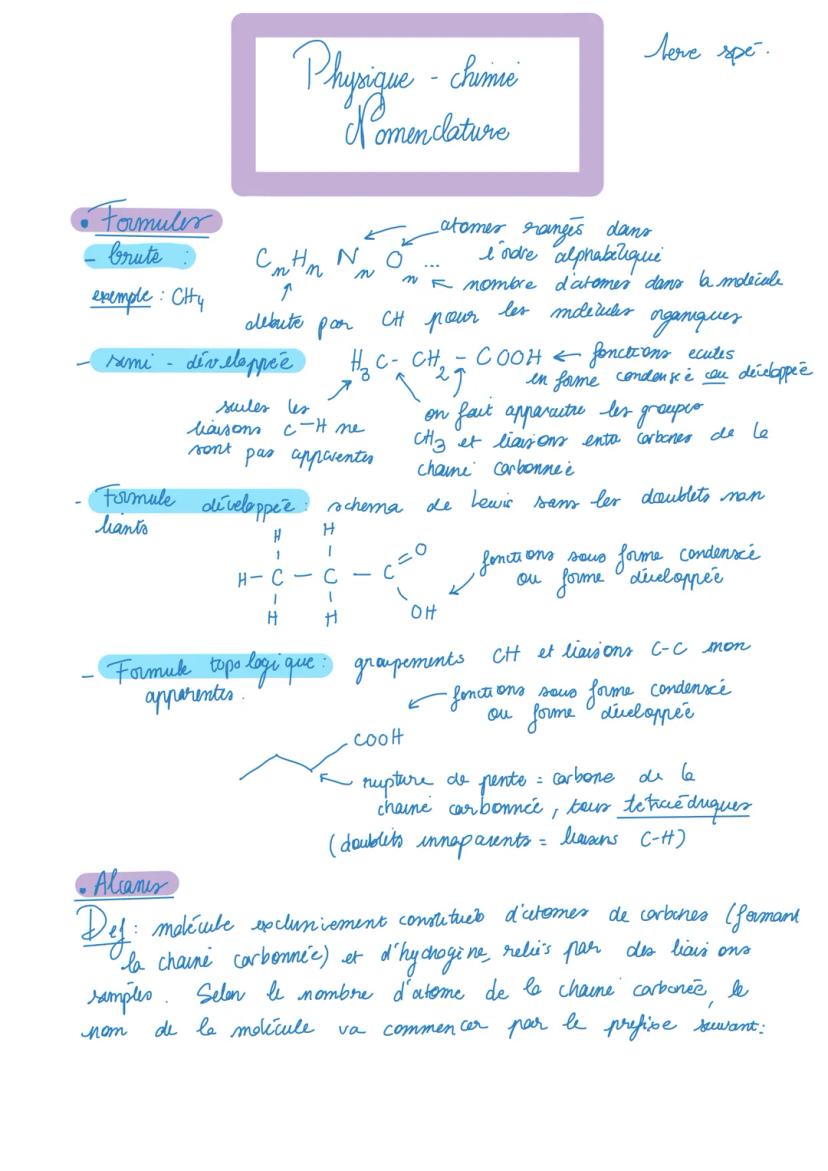 1ere spé.
Physique - chimie
Nomenclature
• Formules
- brute :
CnHn Nn On ...
atomes rangés dans
l'ordre alphabétique
nombre d'atomes dans la molécule
exemple : CH4
débute par CH pour les molécules organiques
- semi - développée
H3C - CH2 - COOH ← fonctions ecutes
en forme condensée ou développée
seules les
liaisons C-H ne
sont pas apparentes
on fait apparaitre les groupes
CH3 et liaisons entre carbones de la
chaine carbonnée
- Formule développée : schema de Lewis sans les doublets non
liants
H H
H - C - C - C = O
H H OH
fonctions sous forme condensée
ou forme développée
- Formule topologique : groupements CH et liaisons C-C non
apparentes.
fonctions sous forme condensée
ou forme développée
COOH
rupture de pente = carbone de la
chaine carbonnée, tous tétraédriques
(doublets innaparents = liaisons C-H)
• Alcanes
Def : molécule exclusivement constitués d'atomes de carbones (formant
la chaine carbonnée) et d'hydrogène, reliés par des liaisons
simples. Selon le nombre d'atome de la chaine carbonée, le
nom de la molécule va commencer par le prefixe suivant :